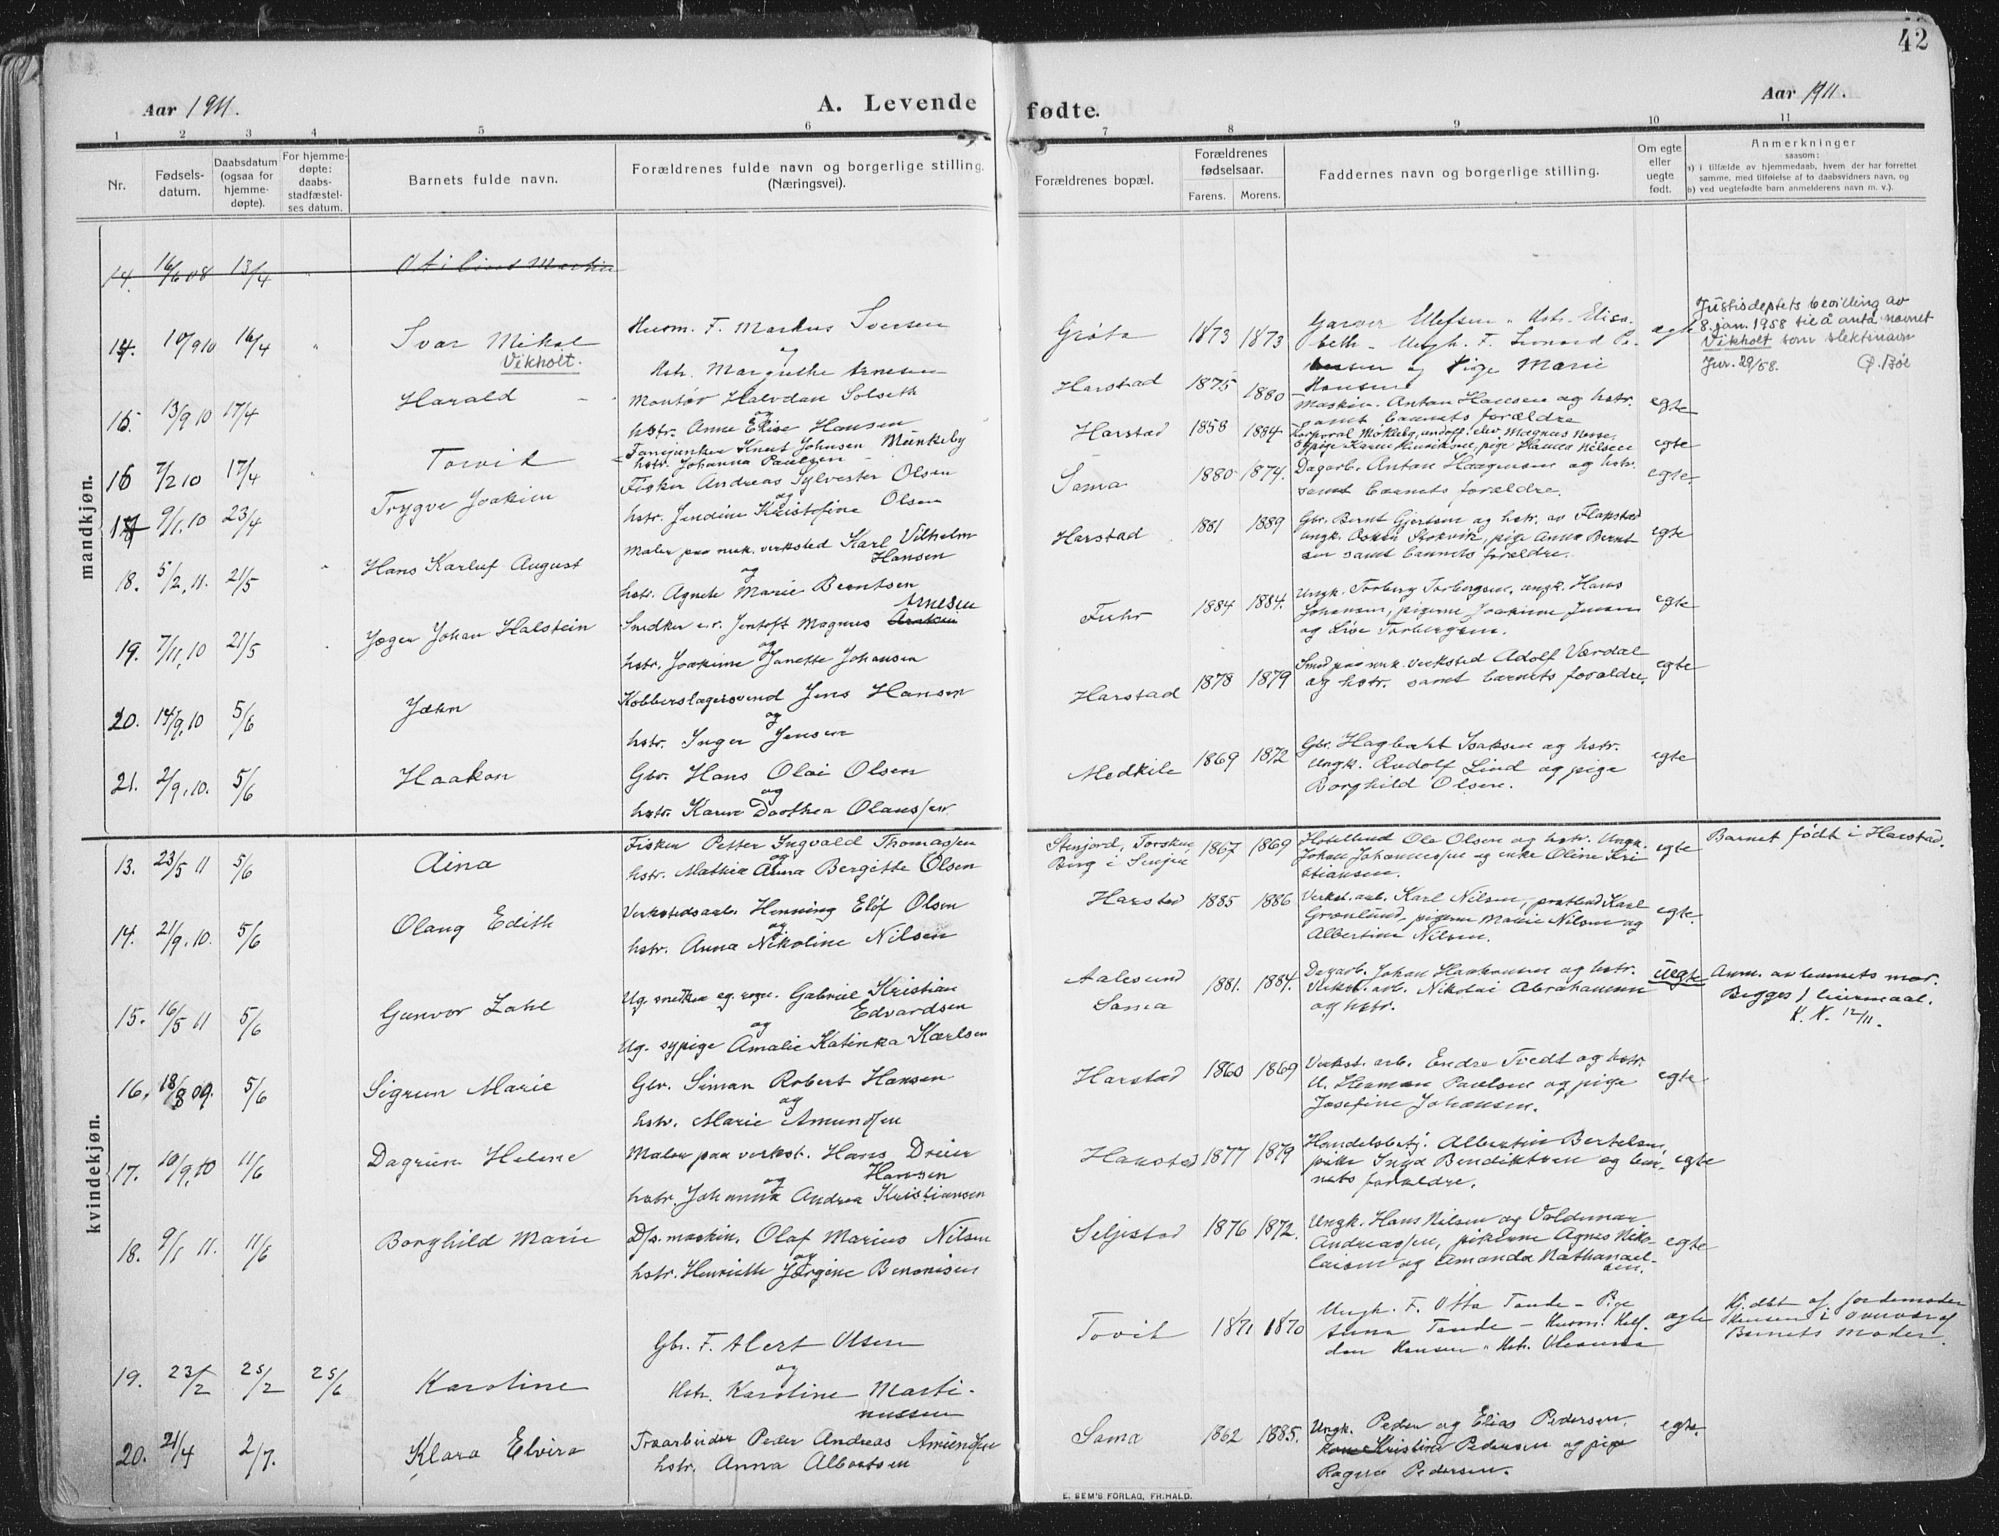 42
Aar 1911.
A. Levende
fødte.
Aar 1911.
1 2 3 4 5 6 7 8 9 10 11
Nr.
Fødsels-
datum.
Daabsdatum
(ogsaa for
hjemme-
døpte).
For hjemme-
døpte:
daabs-
stadfæstel-
ses datum.
Barnets fulde navn.
Forældrenes fulde navn og borgerlige stilling.
(Næringsvei).
Forældrenes bopæl.
Forældrenes
fødselsaar.
Farens. Morens.
Faddernes navn og borgerlige stilling.
Om egte
eller
uegte
født.
Anmerkninger
saasom:
a) i tilfælde av hjemmedaab, hvem der har forrettet
samme, med tilføielse af to daabsvidners navn, og
b) ved uegtefødte barn anmelderens navn m. v.).
mandkjøn.
14. 16/6 08 13/4
14. 10/9 10 16/4
Svar Mikal
Vikholt.
Husm. F. Markus Iversen
og
Hstr. Margrethe Arnesen
Grøta 1873 1873
egte
Justisdeptets bevilling av
8. jan. 1958 til å anta navnet
Vikholt som slektsnavn
Jnr. 29/58. P. Bøe
15. 13/9 10 17/4
Harald
Montør Halvdan Solseth
og
hstr. Anne Elise Hansen
Harstad 1875 1880
Maskin. Anton Hansen og hstr.
samt barnets forældre
egte
16 7/2 10 17/4
Torvik
Sanejunker Knut Johnsen Munkeby
hstr. Johanna Paulsen
Harstad 1858 1884
egte
17 9/1, 10 23/4
Trygve Joakim
Fisker Andreas Sylvester Olsen
og
hstr. Jendine Kristofine Olsen
Sama 1880 1874
Dagarb. Anton Haagensen og hstr.
samt barnets forældre.
egte
18. 5/2, 11. 21/5
Hans Karluf August
Maler paa mek. verksted Karl Vilhelm
Hansen
og
hstr. Agnete Marie Berntsen
Harstad 1881 1889
Gbr. Bernt Gjertsen og hstr. av Flakstad
ungk. Oskar Stokvik, pige Anna Bernt
sen samt barnets forældre.
egte
19. 7/11, 10 21/5
Jæger Johan Halstein
Snedker e. r. Jentoft Magnus Arnesen
og
hstr. Joakime Janette Johansen
Fuhr 1884 1884.
Ungk. Torberg Torbergsen, ungk. Hans
Johansen, pigerne Joakime Jensen
og Lise Torbergsen.
egte
20. 14/9, 10 5/6
Jahn
Kobberslagersvend Jens Hansen
og
hstr. Inger Jensen
Harstad 1878 1879
Smed paa mek. verksted Adolf Værdal
og hstr. samt barnets forældre.
egte
21. 2/9, 10. 5/6
Haakon
Gbr. Hans Olai Olsen
og
hstr. Karen Dorthea Olaussen
Medkile 1869 1872
Gbr. Hagbart Isaksen og hstr.
Ungk. Rudolf Lind og pige
Borghild Olsen.
egte
kvindekjøn.
13. 23/5 11 5/6
Aina
Fisker Petter Ingvald Thomassen
og
hstr. Mathea Anna Bergitte Olsen
Stenjord, Torsken
Berg i Senjen 1867 1869
Hotellend Ole Olsen og hstr. Ungk.
Johan Johannessen og enke Oline Kri
stiansen.
egte
Barnet født i Harstad.
14. 21/9, 10. 5/6
Olaug Edith
Verkstedsarb. Henning Elof Olsen
og
hstr. Anna Nikoline Nilsen
Harstad 1885 1886
Verkst. arb. Karl Nilsen, Karl
Grønlund, pigerne Marie Nilsen og
Albertine Nilsen.
egte.
15. 16/5 11 5/6
Gunvor Zahl
Ug. snedker Gabriel Kristian
Edvardsen
og
Ug. sypige Amalie Katinka Karlsen
Aalesund
Sama 1881. 1884.
Dagarb. Johan Haakonsen og hstr.
Verkst. arb. Nikolai Abrahamsen
og hstr.
uegte
Anm. av barnets mor.
Begges 1 leiermaal.
K. N. 12/11.
16. 18/8 09. 5/6
Sigrun Marie
Gbr. Simon Robert Hansen
og
hstr. Marie Amundsen
Harstad 1860 1869
Verkst. arb. Endre Tvedt og hstr.
U. Herman Paulsen og pige
Josefine Johansen.
egte
17. 10/9, 10 11/6
Dagrun Helene
Maler paa verkst. Hans Dreier
Hansen
og
hstr. Johanna Andrea Kristiansen
Harstad 1877 1879
Handelsbetj. Albertin Bertelsen,
pike Inga Bendiktsen og bar-
nets forældre.
egte
18. 9/1 11. 11/6
Borghild Marie
D/s. maskin. Olaf Marius Nilsen
og
hstr. Henriette Jørgine Benonisen
Seljestad 1876 1872.
Ungk. Hans Nilsen og Valdemar
Andreassen, pikerne Agnes Niko-
laisen og Amanda Nathanael-
sen.
egte
19. 23/2 25/2 25/6
Karoline
Gbr. F. Alert Olsen
og
Hstr. Karoline Marti-
nussen
Tovik 1871 1870
Ungk. F. Otto Tande - Pige
Anna Tande - Husm. Half-
dan Hansen
egte
Hj.dbt af jordemoder
Hansen i overvær af
Barnets moder.
20. 21/4 2/7.
Klara Elvira
Traarbeider Peder Andreas Amundsen
hstr. Anna Albertsen
Sama 1862 1885.
Ungk. Peder og Elias Pedersen,
Kristine Pedersen og pige
Ragna Pedersen.
egte.
E. SEM'S FORLAG, FR.HALD.